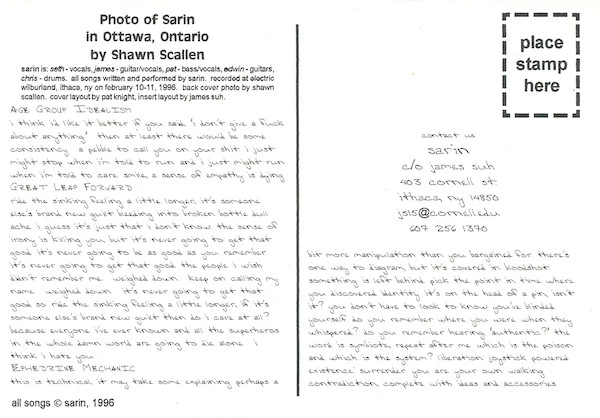 Photo of Sarin
in Ottawa, Ontario
by Shawn Scallen
sarin is: seth - vocals, james - guitar/vocals, pat - bass/vocals, edwin - guitars,
chris - drums. all songs written and performed by sarin. recorded at electric
wilburland, ithaca, ny on february 10-11, 1996. back cover photo by shawn
scallen. cover layout by pat knight, insert layout by james suh.
AGE GROUP IDEALISM
i think i'd like it better if you said, "i don't give a fuck
about anything" then at least there would be some
consistency a pebble to call you on your shit i just
might stop when i'm told to run and i just might run
when i'm told to care smile, a sense of empathy is dying
GREAT LEAP FORWARD
ride the sinking feeling a little longer, it's someone
else's brand new guilt bleeding into broken bottle dull
ache i guess it's just that i don't know the sense of
irony is killing you, but it's never going to get that
good it's never going to be as good as you remember
it's never going to get that good the people i wish
didn't remember me weighed down keep on calling my
name weighed down it's never going to get that
good so ride the sinking feeling a little longer, if it's
someone else's brand new guilt then do i care at all?
because everyone i've ever known and all the superheros
in the whole damn world are going to die alone i
think i hate you
EPHEDRINE MECHANIC
this is technical, it may take some explaining perhaps a
all songs © sarin, 1996
place
stamp
here
contact us
sarin
c/o james suh
403 cornell st.
ithaca, ny 14850
js15@cornell.edu
607 256 1370
bit more manipulation than you bargained for there's
one way to diagram, but it's covered in bloodshot
something is left behind pick the point in time where
you discovered identity it's on the head of a pin, isn't
it? you don't have to look to know you're blinded
yourself do you remember where you were when they
whispered? do you remember hearing "authentic?" the
word is symbiote, repeat after me which is the poison
and which is the system? liberation joystick powered
existence surrender you are your own walking
contradiction complete with ideas and accessories